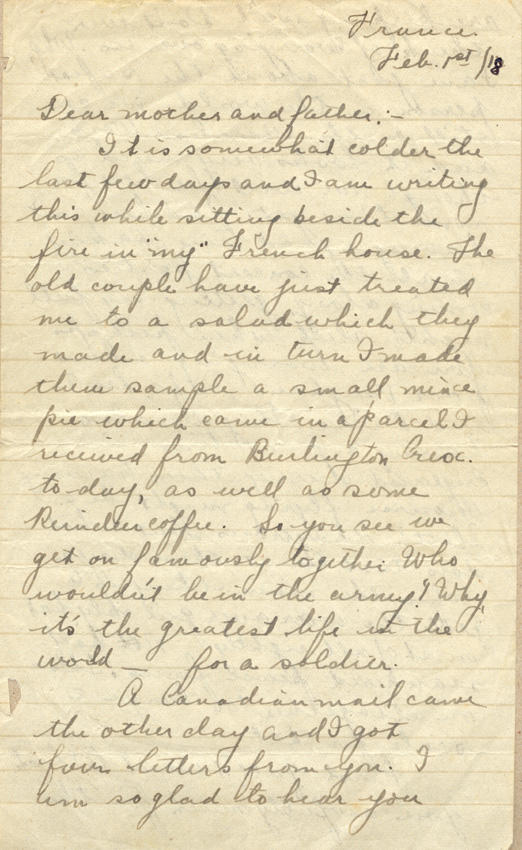 France.
Feb. 1st /18
Dear mother and father:-
It is somewhat colder the
last few days and I am writing
this while sitting beside the
fire in "my" French house. The
old couple have just treated
me to a salad which they
made and in turn I made
them sample a small mince
pie which came in a parcel I
received from Burlington Cresc.
to-day, as well as some
Reindeer coffee. So you see we
get on famously together. Who
wouldn't be in the army! Why
it's the greatest life in the
world — for a soldier.
A Canadian mail came
the other day and I got
four letters from you. I
am so glad to hear you